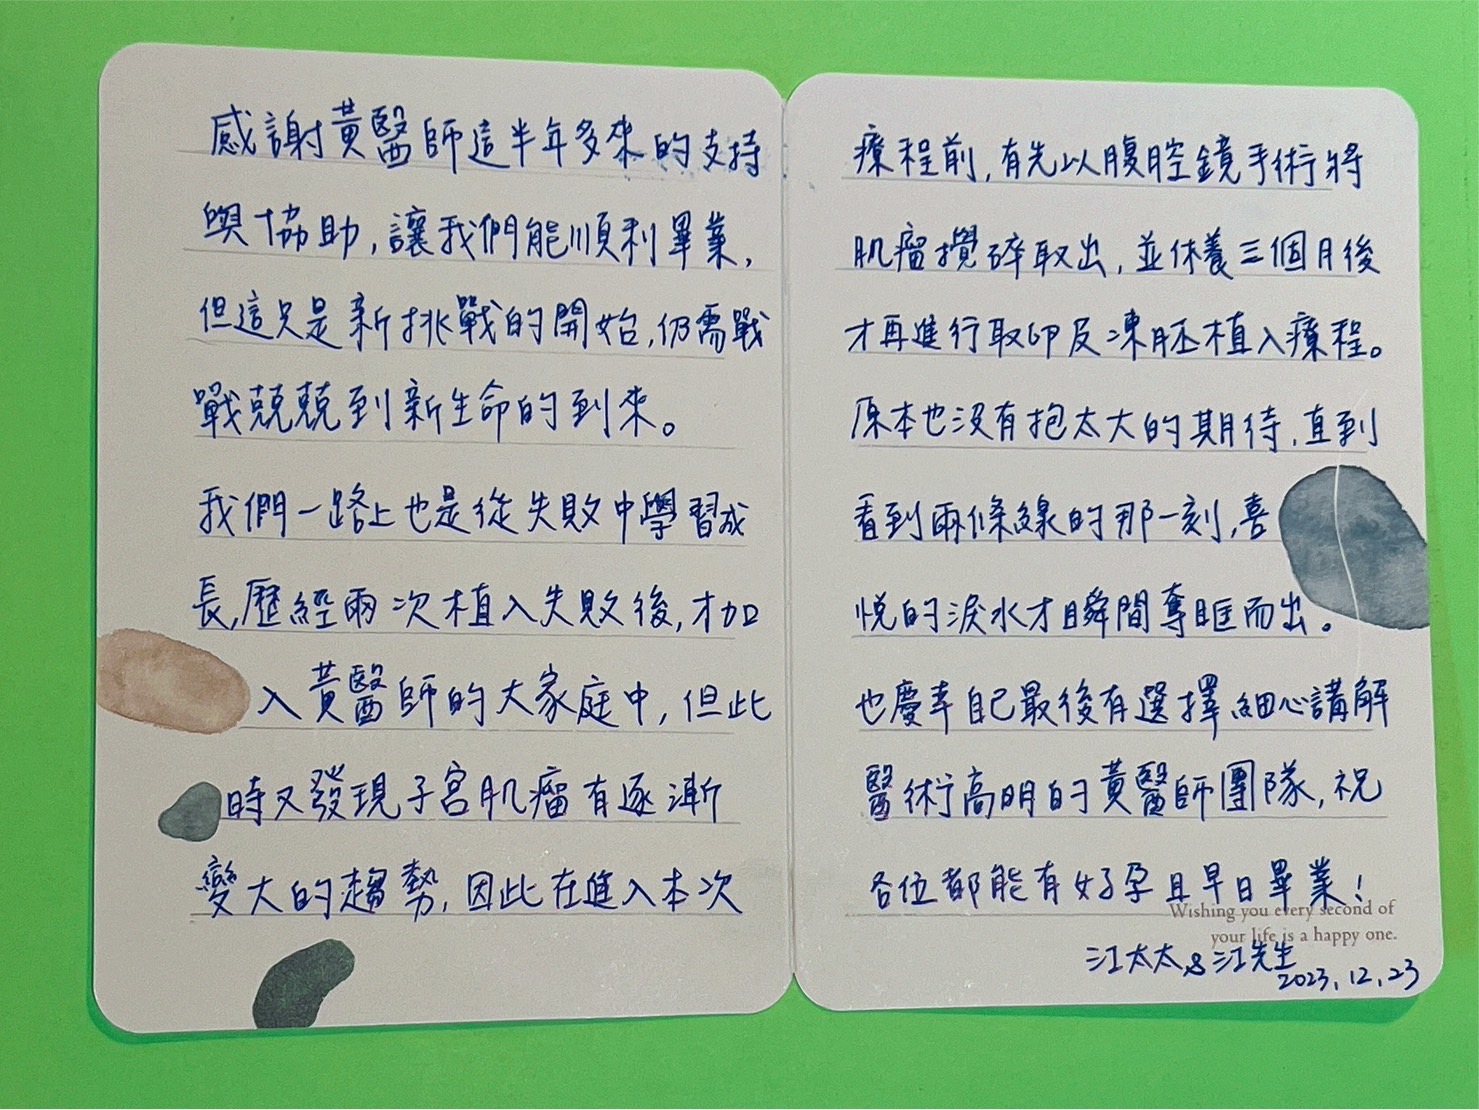 感謝黃醫師這半年多來的支持
與協助,讓我們能順利畢業,
但這只是新挑戰的開始,仍需戰
戰兢兢到新生命的到來。
我們一路上也是從失敗中學習成
長,歷經兩次植入失敗後,才加
入黃醫師的大家庭中,但此
時又發現子宮肌瘤有逐漸
變大的趨勢,因此在進入本次
療程前,有先以腹腔鏡手術將
肌瘤攪碎取出,並休養三個月後
才再進行取卵及凍胚植入療程。
原本也沒有抱太大的期待,直到
看到兩條線的那一刻,喜
悅的淚水才瞬間奪眶而出。
也慶幸自己最後有選擇細心講解
醫術高明的黃醫師團隊,祝
各位都能有好孕且早日畢業!
Wishing you every second of
your life is a happy one.
江太太&江先生
2023.12.23